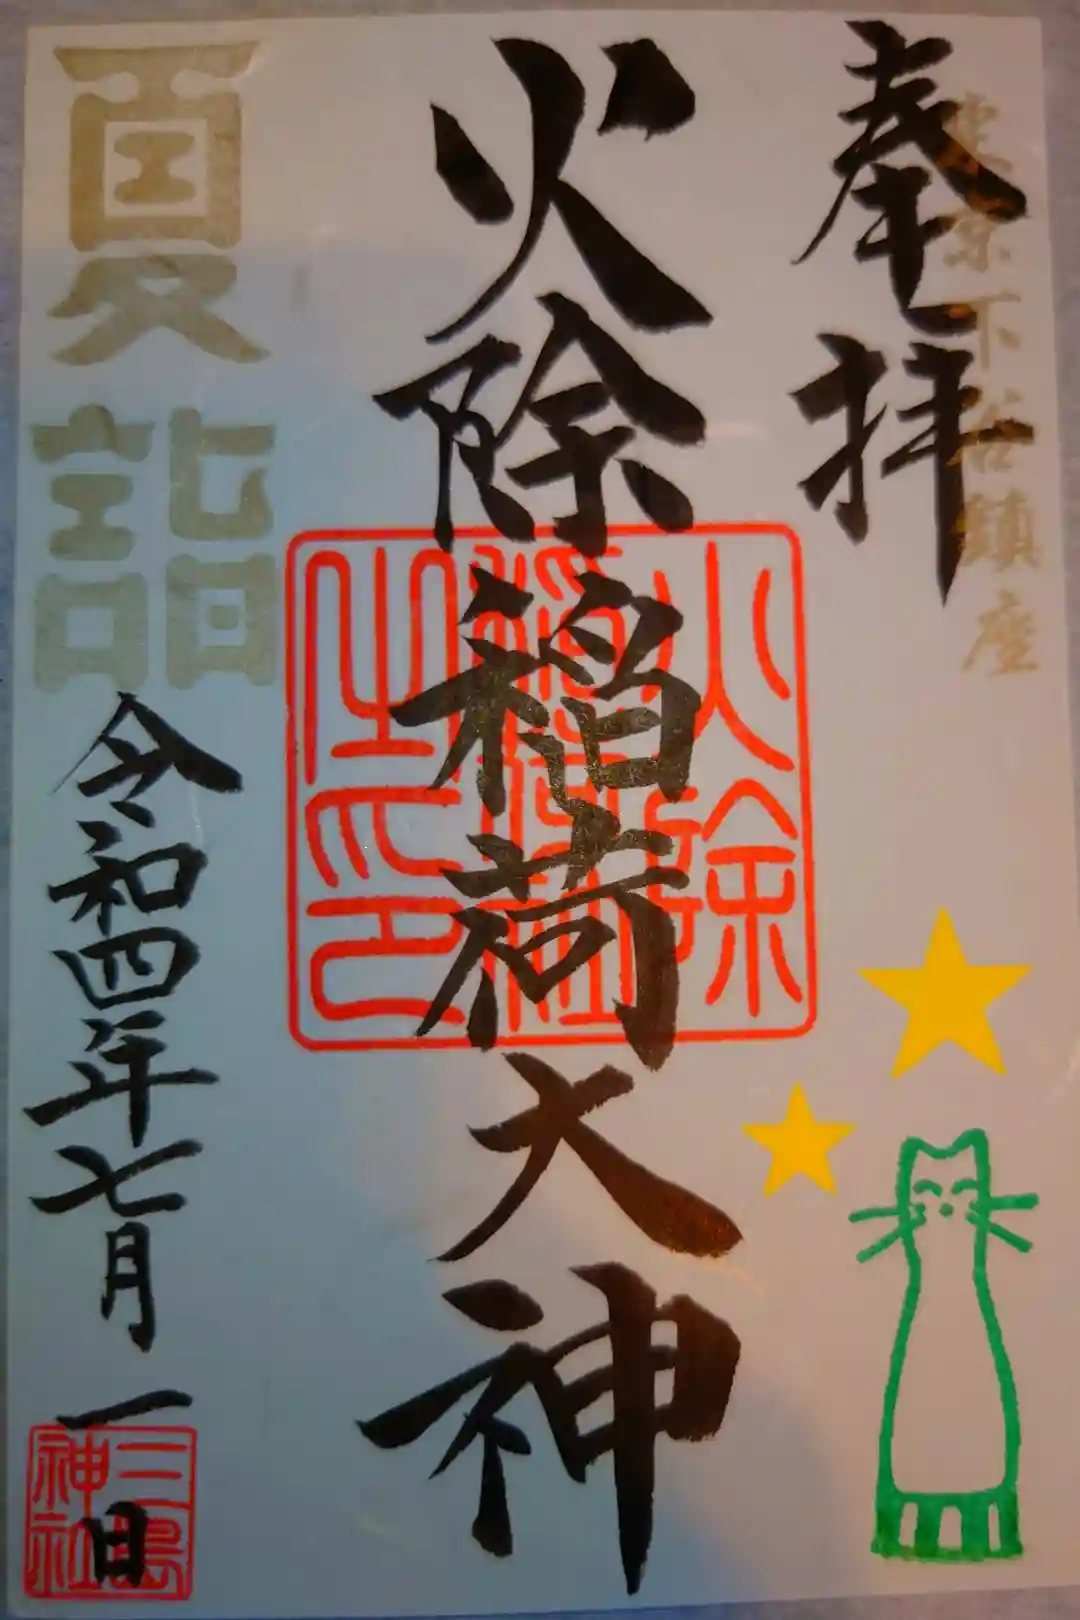 奉拝
東京下谷鎮座
火除稲荷大神
火除
稲荷社
之印
夏詣
令和四年七月一日
三島
神社